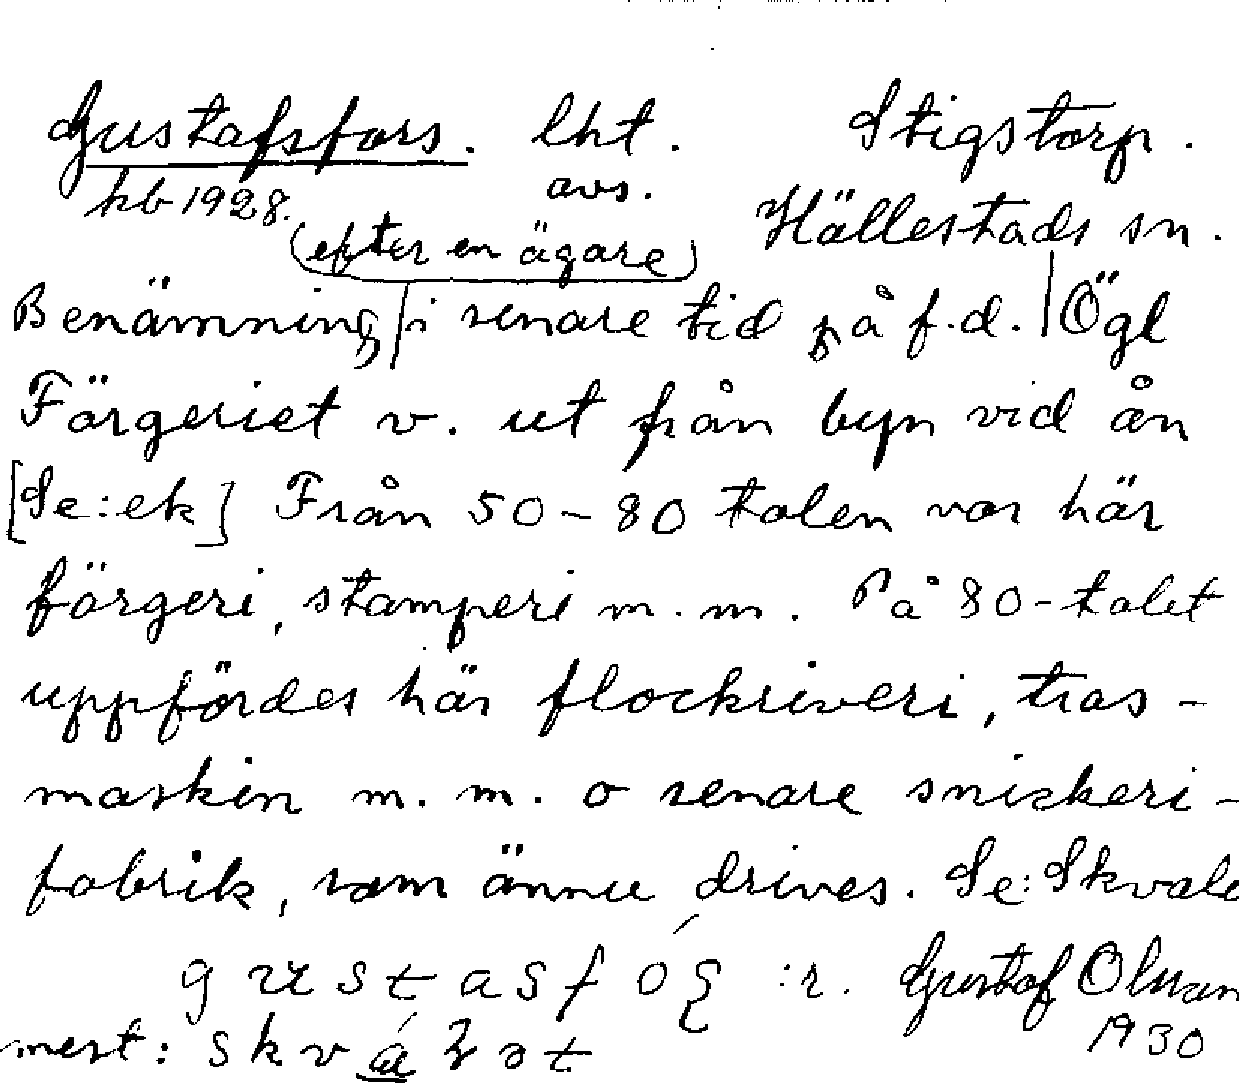 Gustafsfors. lht. Stigstorp.
kb 1928. avs. Hällestads sn.
(efter en ägare)
Benämning i senare tid på f.d. Ögl
Färgeriet v. ut från byn vid ån
[Se: ek] Från 50-80 talen var här
färgeri, stamperi m. m. På 80-talet
uppfördes här flockriveri, tras-
maskin m. m. o senare snickeri-
fabrik, som ännu drives. Se: Skvale
gustasfó :r. Gustaf Olsson
mest: skv 1930